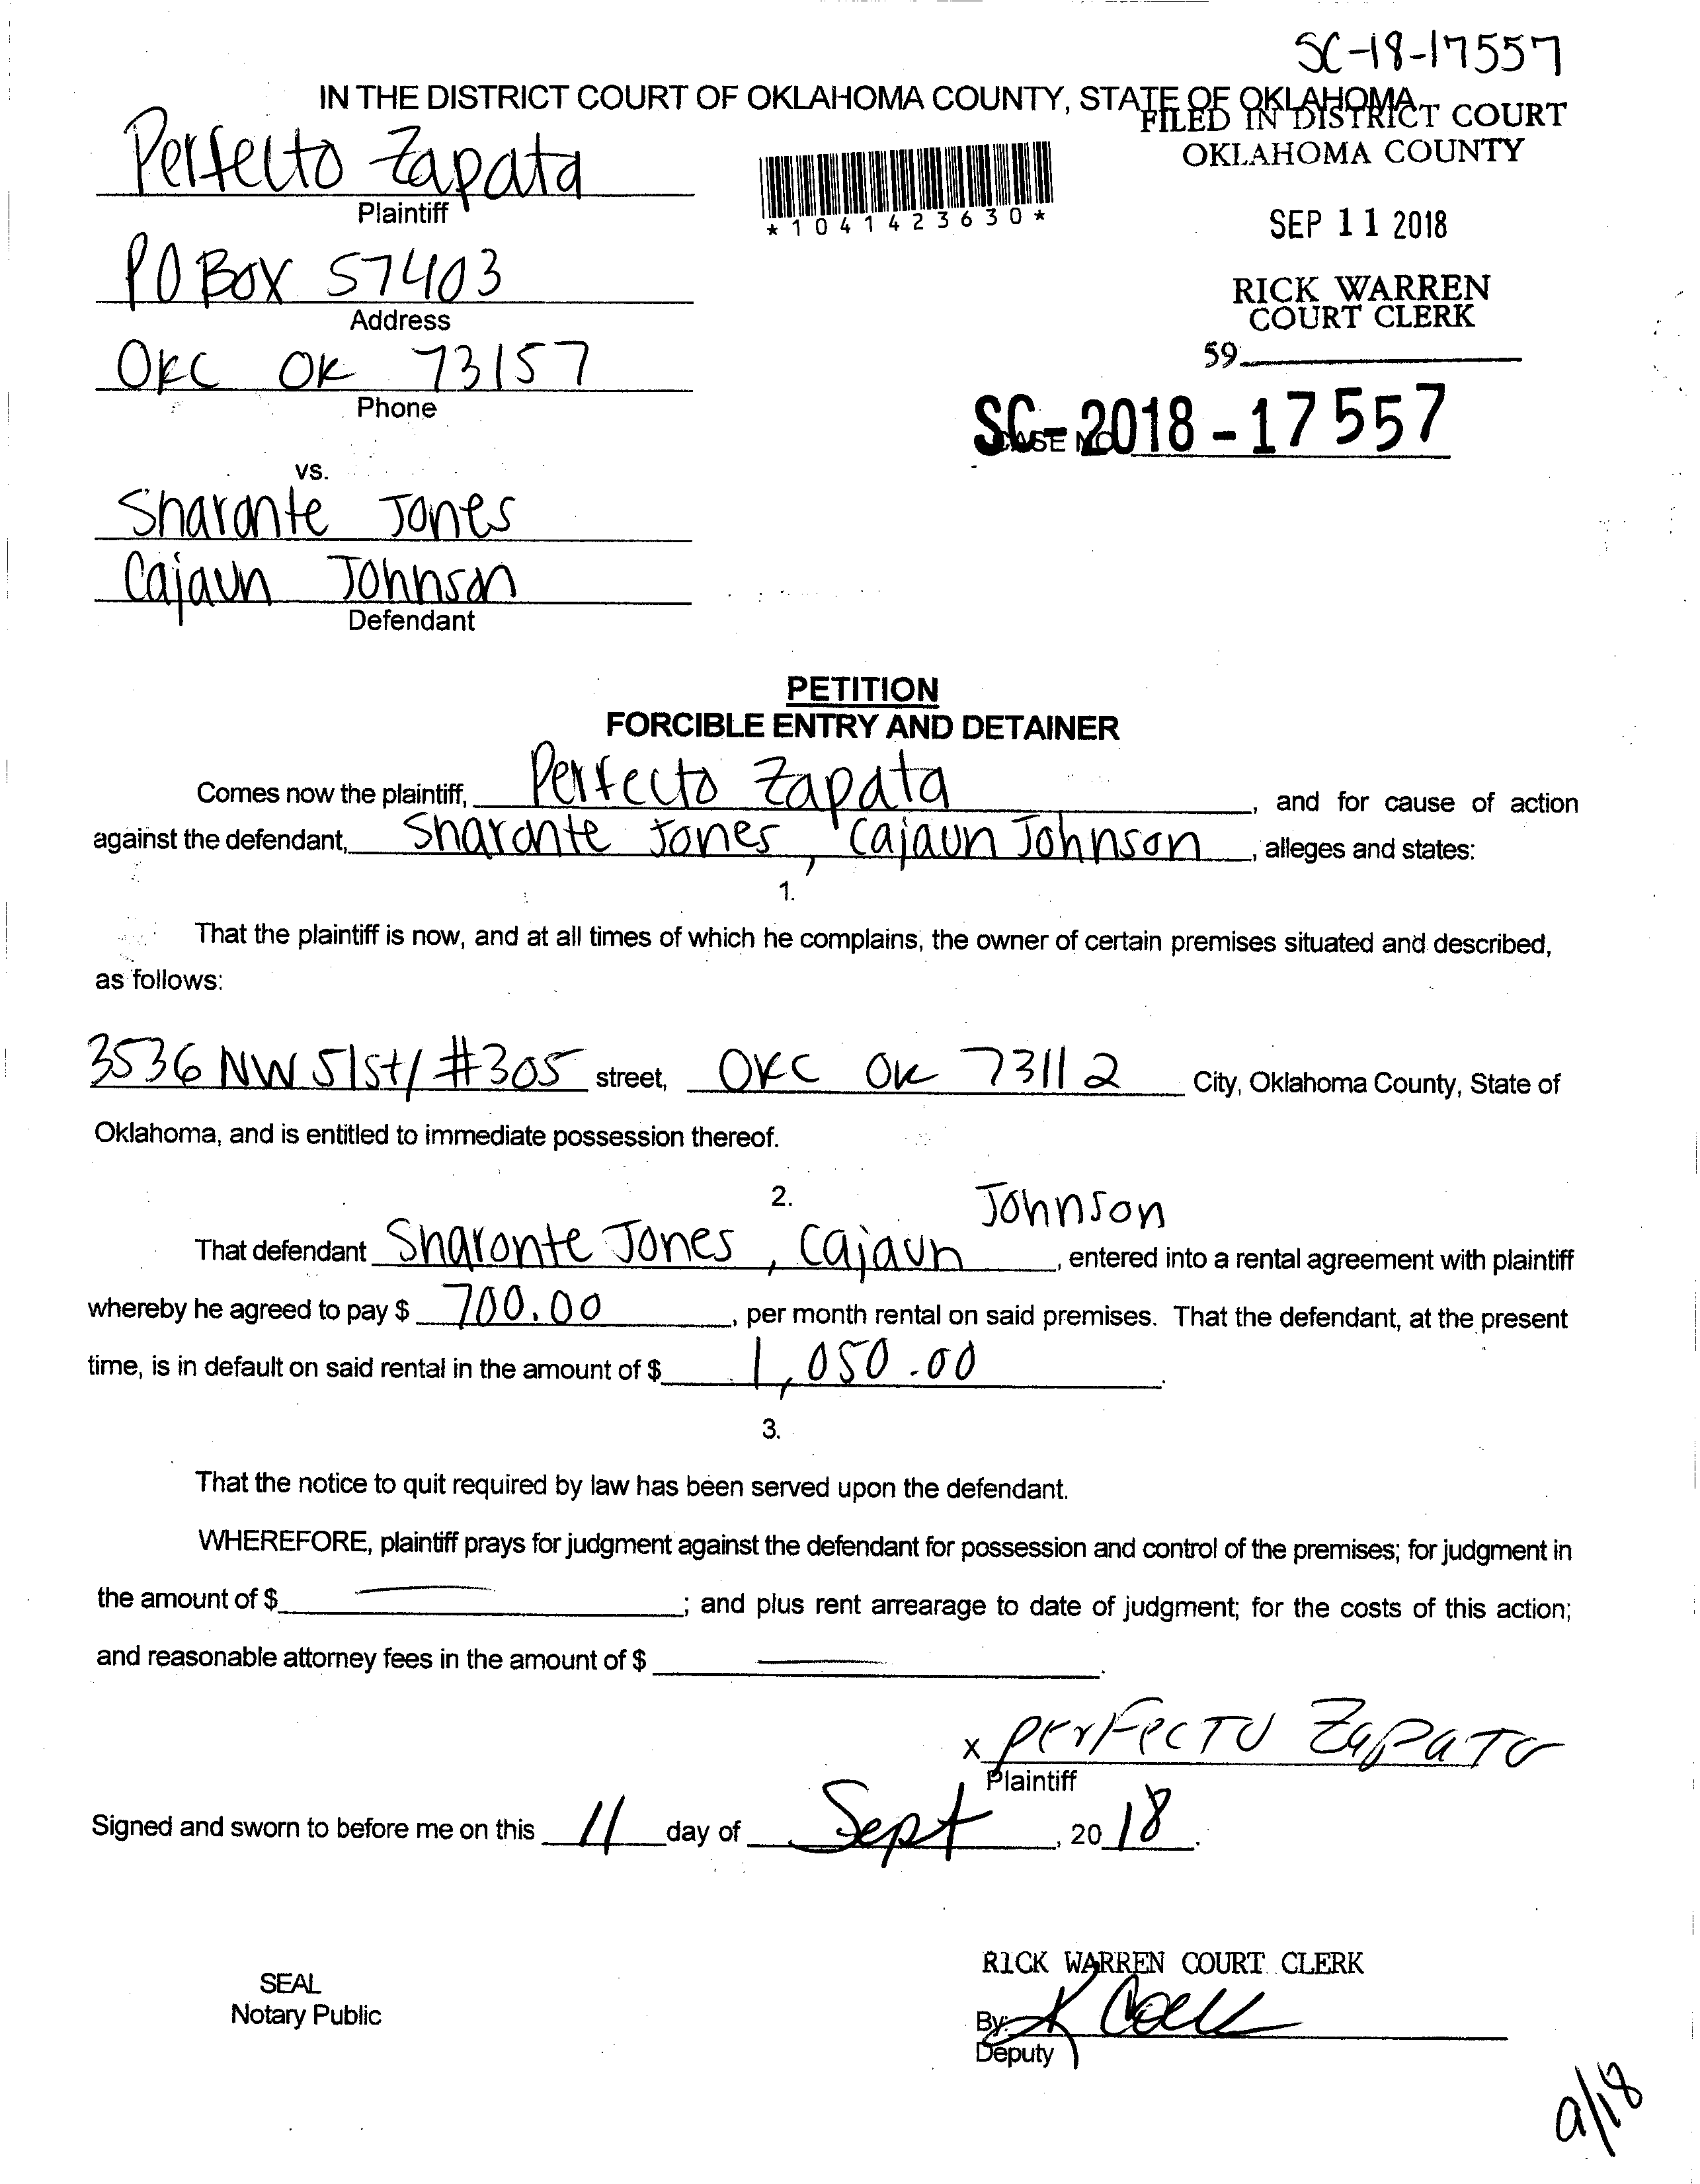 SC-18-17557
IN THE DISTRICT COURT OF OKLAHOMA COUNTY, STATE OF OKLAHOMA
FILED IN DISTRICT COURT
OKLAHOMA COUNTY
Perfecto Zapata
Plaintiff
*1041423630*
SEP 11 2018
PO BOX 57403
Address
RICK WARREN
COURT CLERK
OKC OK 73157
Phone
59
SC-2018-17557
CASE NO.
vs.
Sharonte Jones
Cajaun Johnson
Defendant
PETITION
FORCIBLE ENTRY AND DETAINER
Comes now the plaintiff, Perfecto Zapata, and for cause of action
against the defendant, Sharonte Jones, Cajaun Johnson, alleges and states:
1.
That the plaintiff is now, and at all times of which he complains, the owner of certain premises situated and described,
as follows:
3536 NW 51st/ #305 street, OKC OK 73112 City, Oklahoma County, State of
Oklahoma, and is entitled to immediate possession thereof.
2.
Johnson
That defendant Sharonte Jones, Cajaun, entered into a rental agreement with plaintiff
whereby he agreed to pay $ 700.00, per month rental on said premises. That the defendant, at the present
time, is in default on said rental in the amount of $ 1,050.00.
3.
That the notice to quit required by law has been served upon the defendant.
WHEREFORE, plaintiff prays for judgment against the defendant for possession and control of the premises; for judgment in
the amount of $ —; and plus rent arrearage to date of judgment; for the costs of this action;
and reasonable attorney fees in the amount of $ —.
x Perfecto Zapata
Plaintiff
Signed and sworn to before me on this 11 day of Sept, 2018.
RICK WARREN COURT CLERK
SEAL
Notary Public
By: K
Deputy
9/18